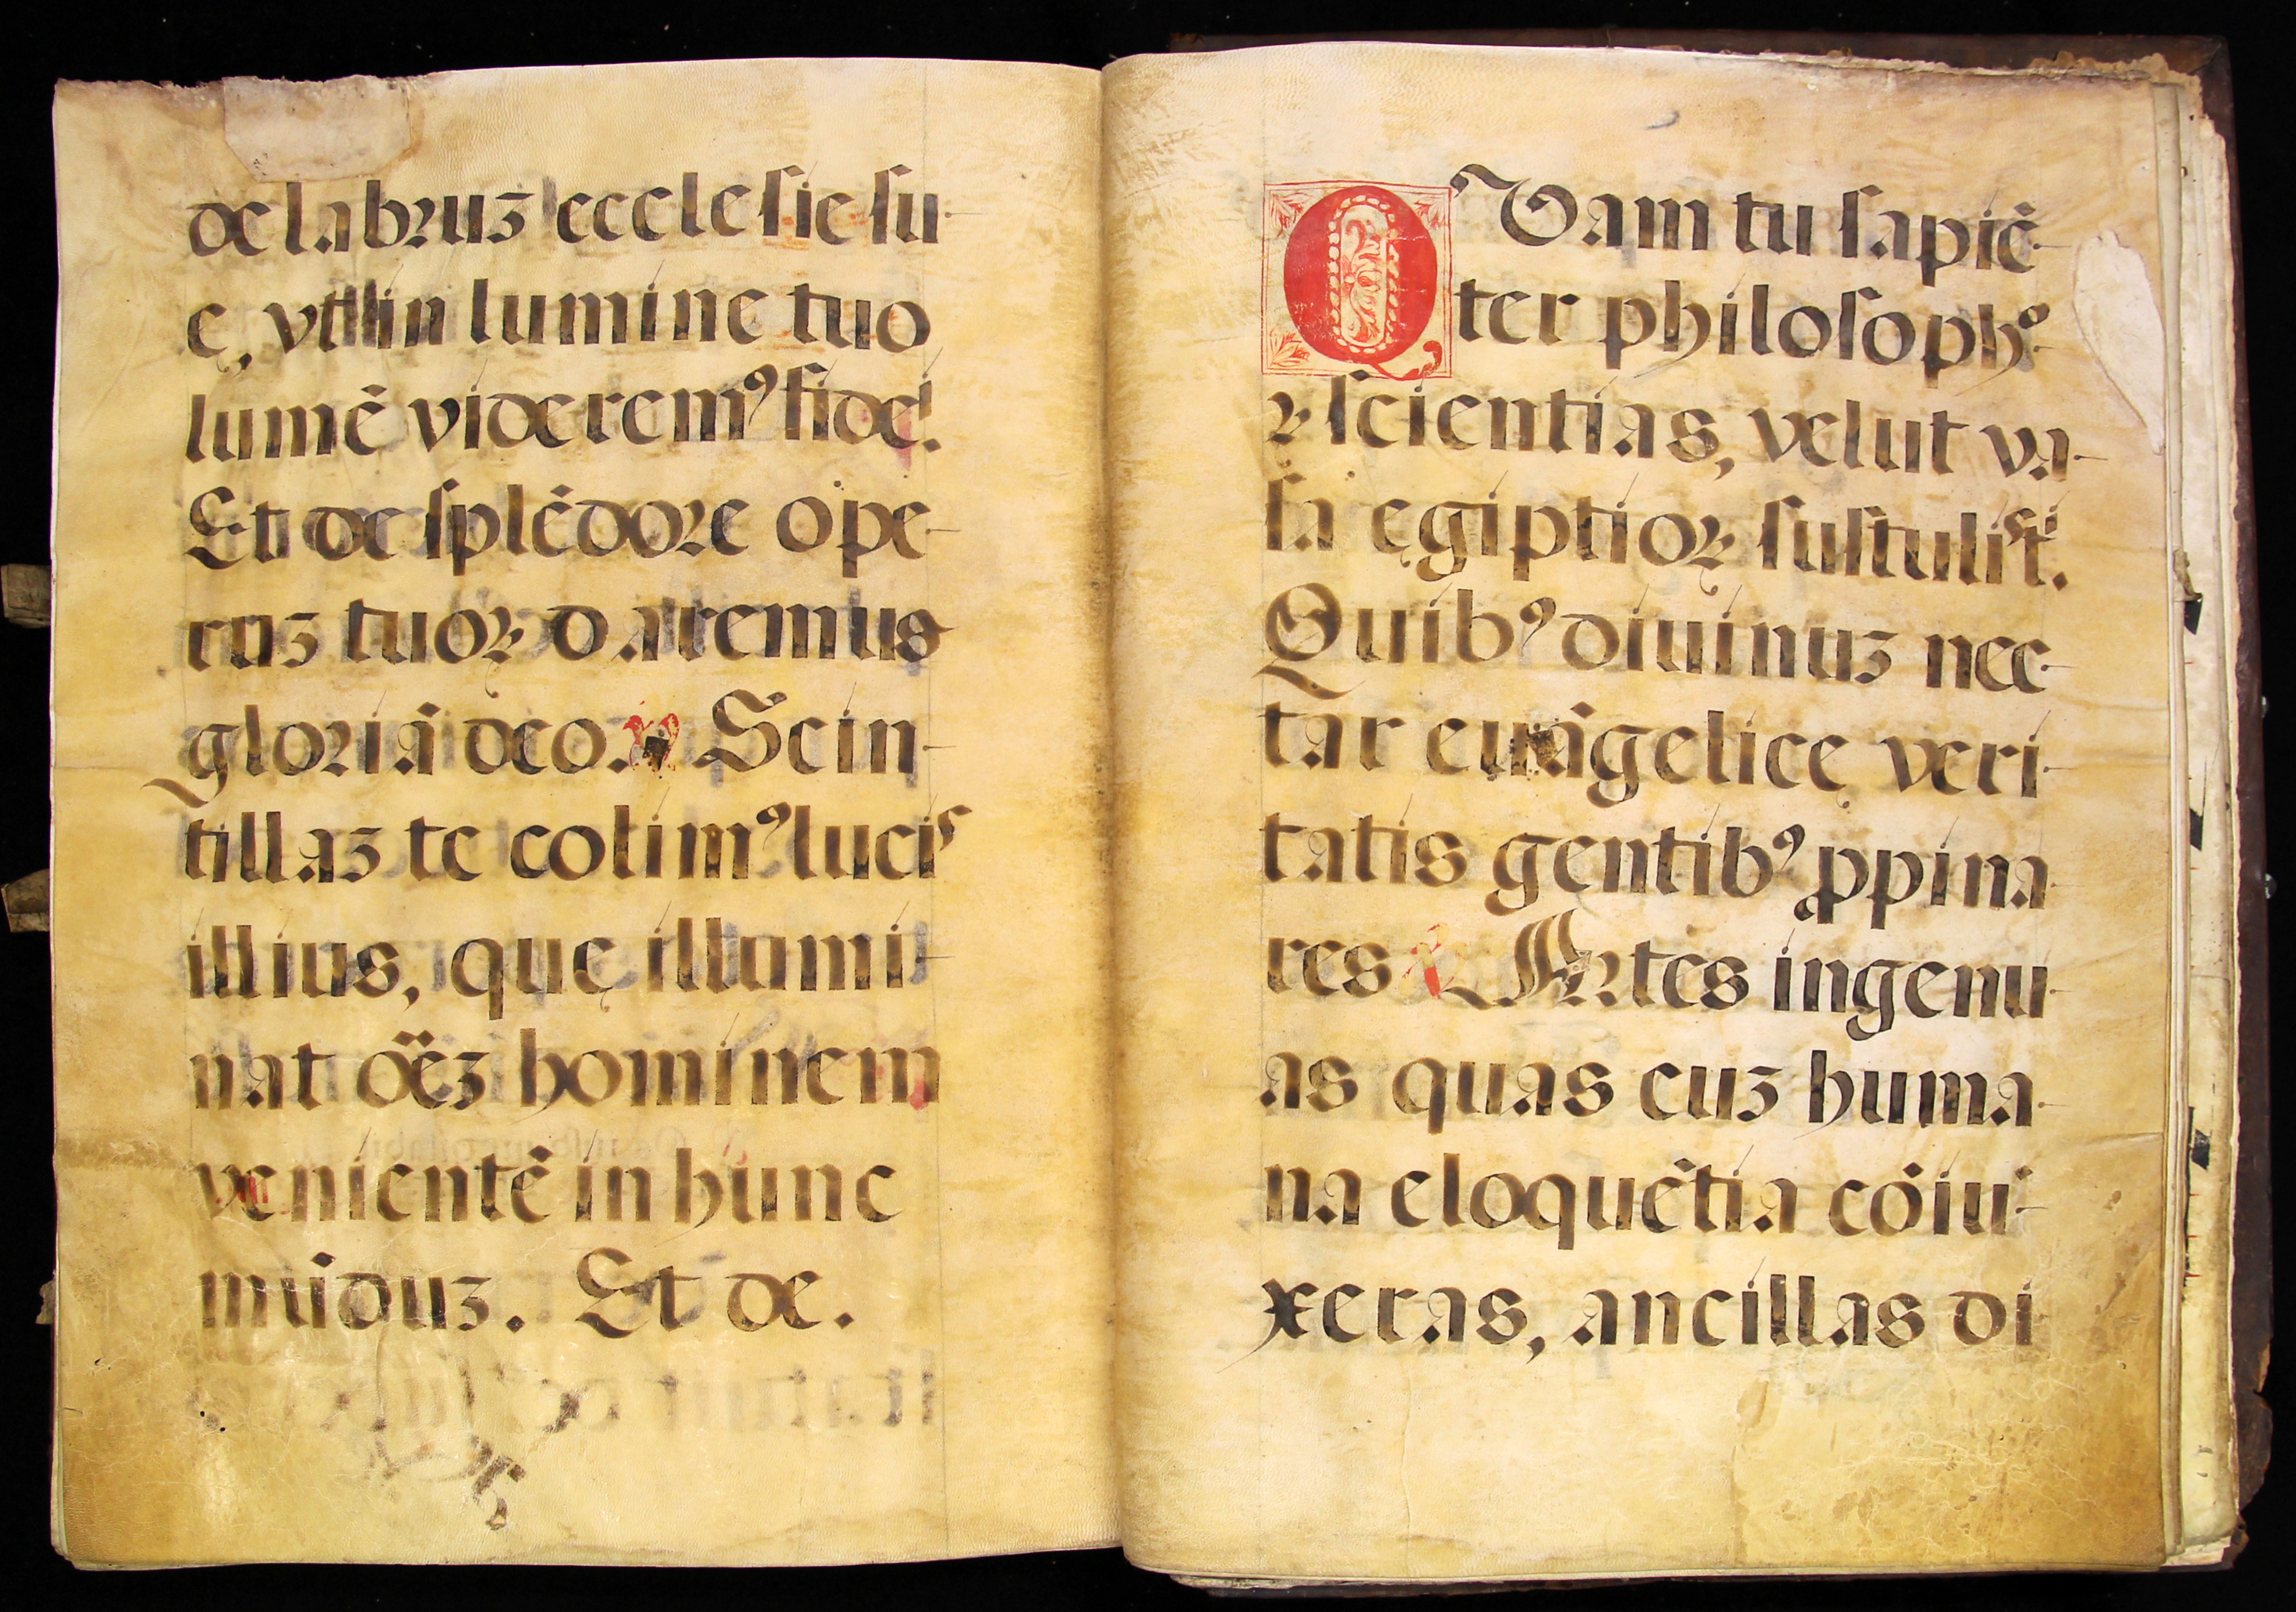 delabruꝫ ecclesie su-
ę, vt in lumine tuo
lumē videremꝰ fidei.
Et de splēdore ope-
ruꝫ tuoꝝ daremus
gloriā deo. ℣ Scin-
tillaꝫ te colimꝰ lucis
illius, quę illumi-
nat oēꝫ hominem
venientē in hunc
mūduꝫ. Et de.
QVam tu sapiē-
ter philosophꝰ
⁊ scientias, velut va-
sa ęgiptioꝝ sustulisti.
Quibꝰ diuinuꝫ nec-
tar euāgelicę veri-
tatis gentibꝰ ꝓpina-
res ℣ Artes ingenu-
as quas cuꝫ huma-
na eloquētia cōiu-
xeras, ancillas di-